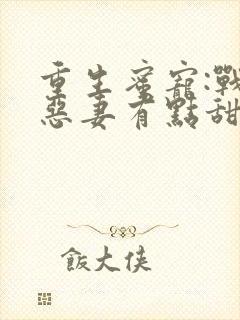 重生蜜寵:戰
惡妻有點甜
飯大俠